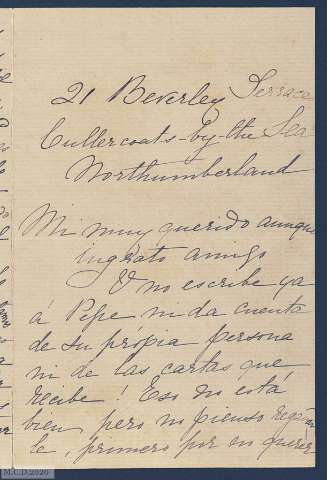 21 Beverley Terrace
Cullercoats-by-the Sea
Northumberland
Mi muy querido aunque
ingrato amigo
V no escribe ya
á Pepe ni da cuenta
de su própia persona
ni de las cartas que
recibe! Eso no está
bien, pero no pienso
le, primero por no querer
M.C.D.2020